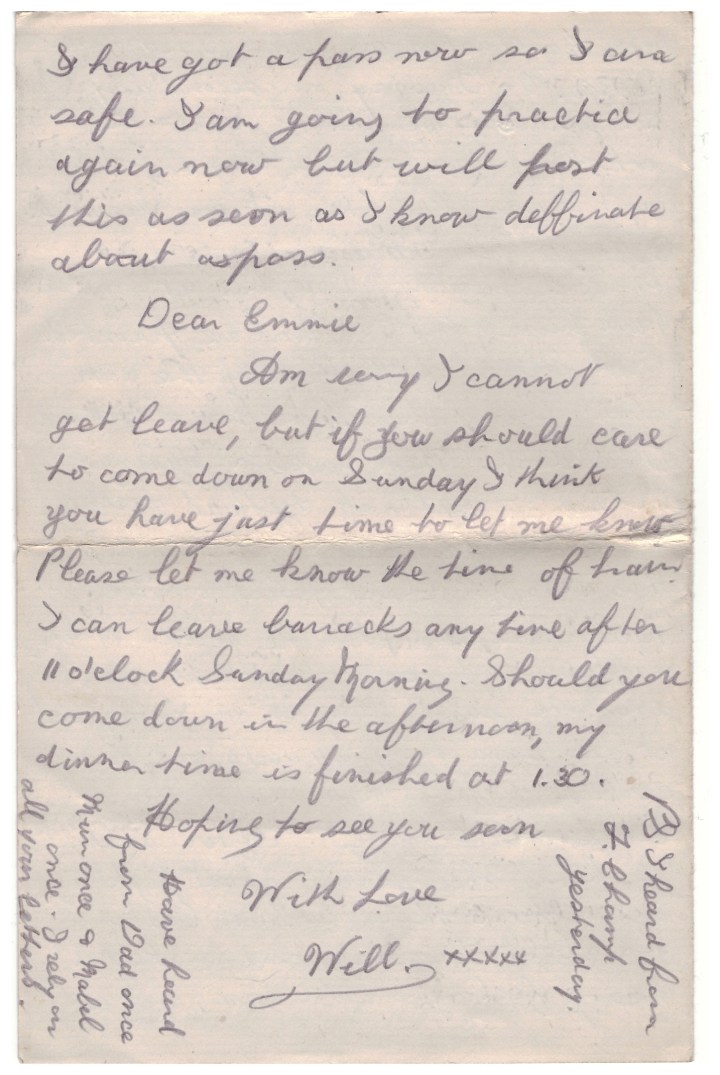 I have got a pass now so I am
safe. I am going to practice
again now but will post
this as soon as I know deffinate
about as pass.
Dear Emmie
Am sorry I cannot
get leave, but if you should care
to come down on Sunday I think
you have just time to let me know
Please let me know the time of train.
I can leave barracks any time after
11 o'clock Sunday Morning. Should you
come down in the afternoon, my
dinner time is finished at 1.30.
Hoping to see you soon
With Love
Will. xxxxx
PS. I heard from
F. Champ
yesterday.
Have heard
from Dad once
Mum once & Mabel
once. I rely on
all your letters.